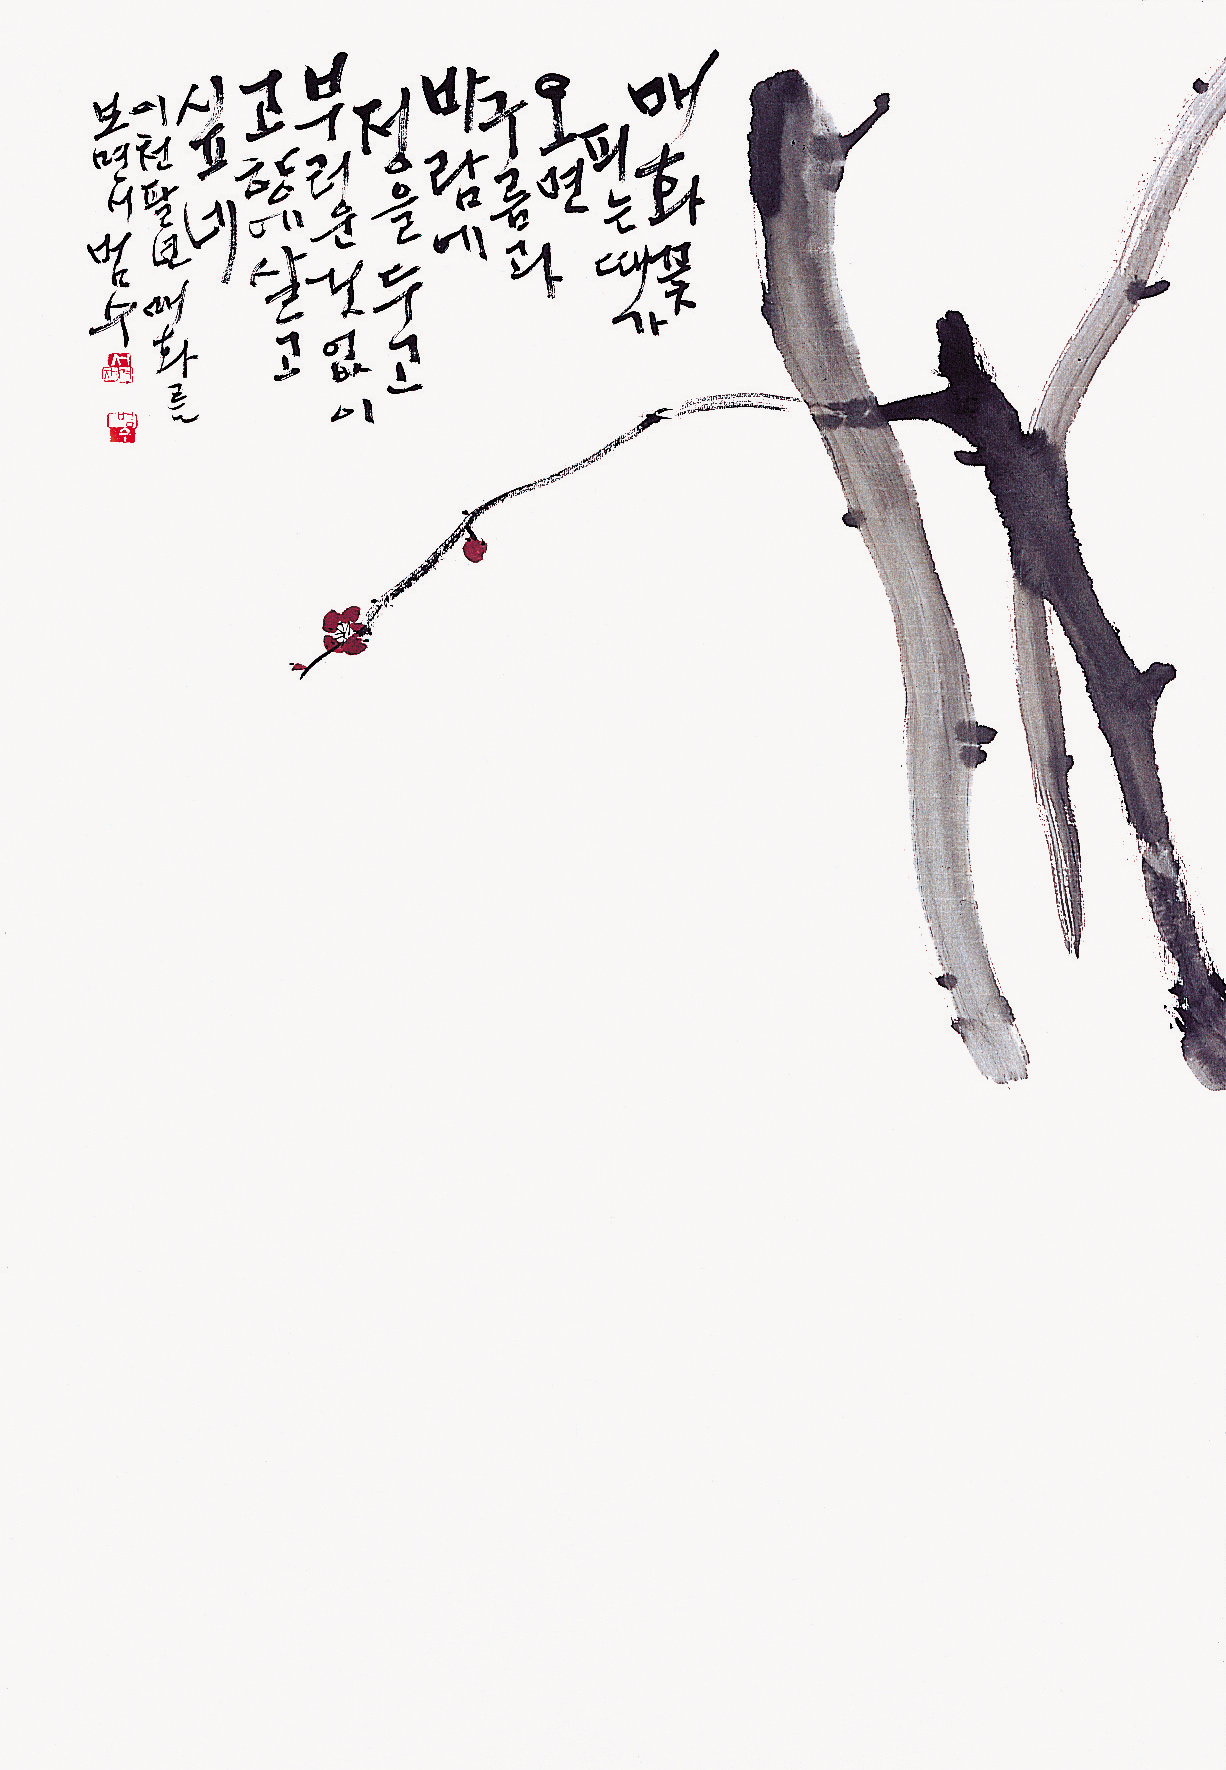 매화꽃
피는 때가
오면
구름과
바람에
정을 두고
부러운 것 없이
고향에 살고
싶네
이천팔 봄 매화를
보면서 범수
범수